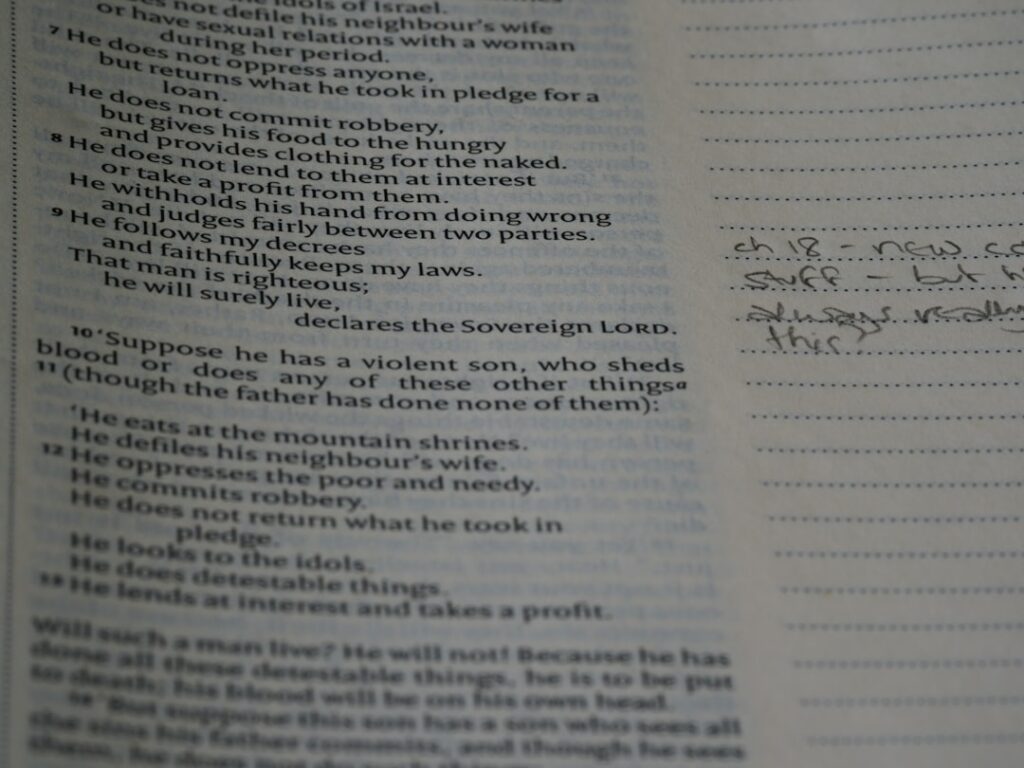 the idols of Israel.
does not defile his neighbour's wife
or have sexual relations with a woman
during her period.
7 He does not oppress anyone,
but returns what he took in pledge for a
loan.
He does not commit robbery,
but gives his food to the hungry
and provides clothing for the naked.
8 He does not lend to them at interest
or take a profit from them.
He withholds his hand from doing wrong
and judges fairly between two parties.
9 He follows my decrees
and faithfully keeps my laws.
That man is righteous;
he will surely live,
declares the Sovereign LORD.
10 ‘Suppose he has a violent son, who sheds
blood or does any of these other things a
11 (though the father has done none of them):
‘He eats at the mountain shrines.
He defiles his neighbour's wife.
12 He oppresses the poor and needy.
He commits robbery.
He does not return what he took in
pledge.
He looks to the idols.
He does detestable things.
13 He lends at interest and takes a profit.
Will such a man live? He will not! Because he has
done all these detestable things, he is to be put
to death; his blood will be on his own head.
14 ‘But suppose this son has a son who sees all
the sins his father commits, and though he sees
them, he does not do such things:
ch 18 - new
stuff - but
always really
this.